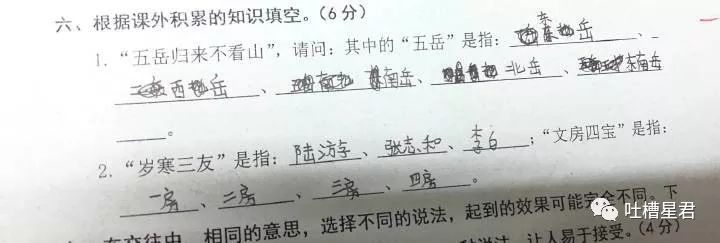 六、根据课外积累的知识填空。(6分)
1. “五岳归来不看山”，请问：其中的“五岳”是指：东岳、
西岳、南岳、北岳、
。
2. “岁寒三友”是指：陆游、张志和、李白；“文房四宝”是指：
一房、二房、三房、四房。
在交往中，相同的意思，选择不同的说法，起到的效果可能完全不同。下
说法，让人易于接受。(4分)
吐槽星君